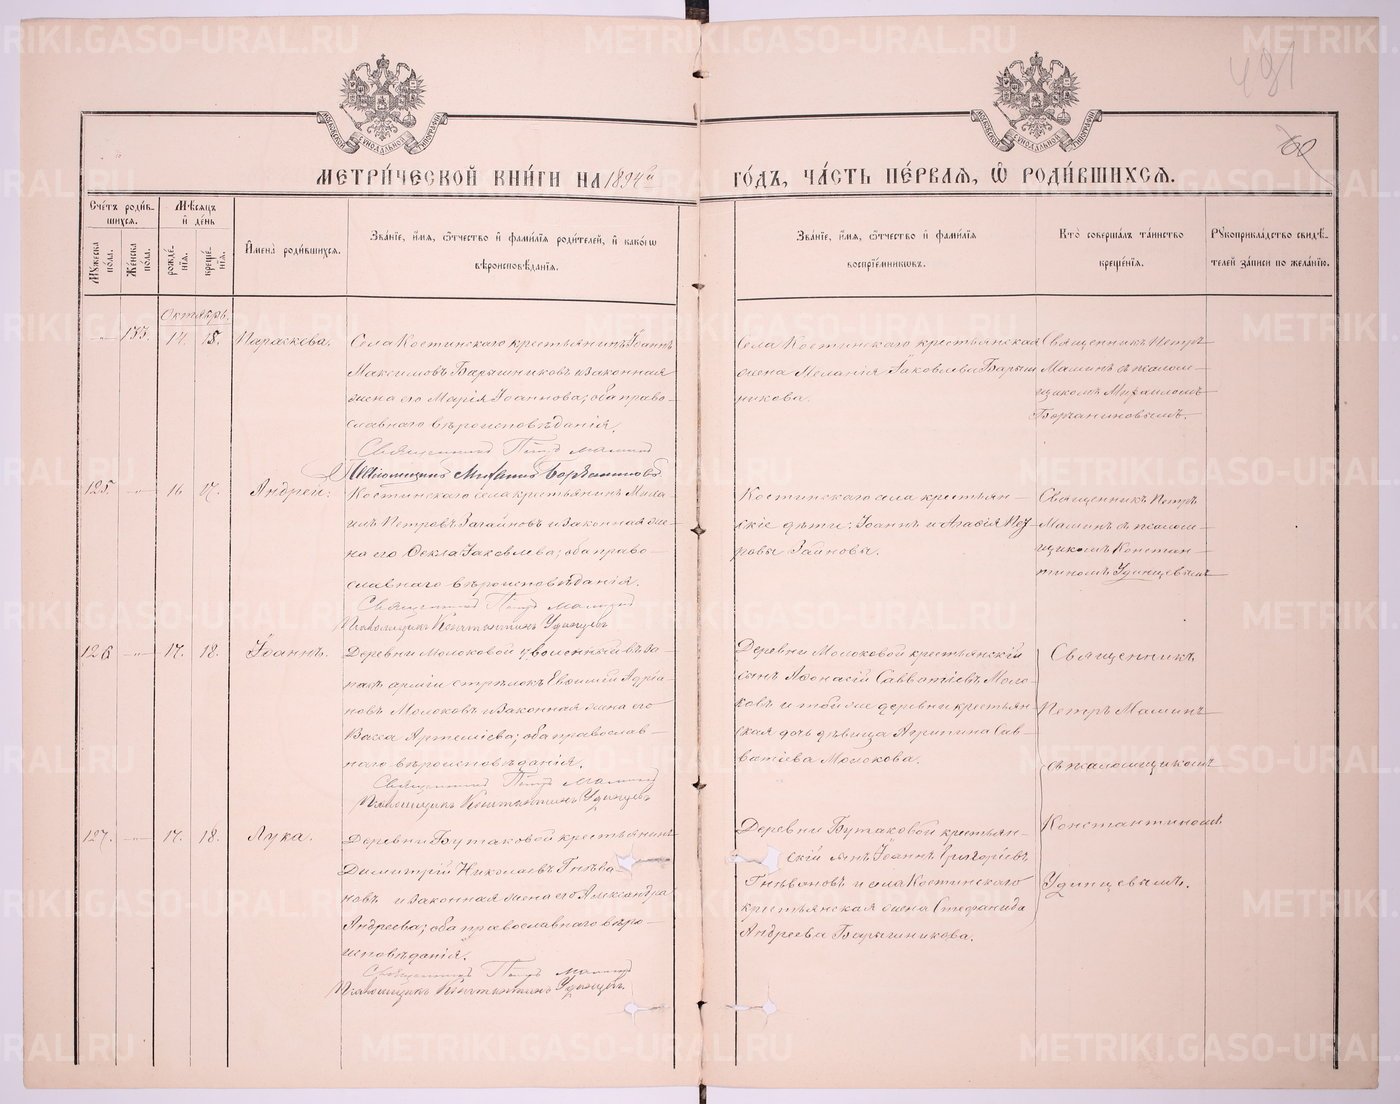 491
60
МЕТРИ́ЧЕСКОЙ КНИ́ГИ НА 1894й
ГО́ДЪ, ЧА́СТЬ ПЕ́РВАЯ, Ѡ҆ РОДИ́ВШИХСЯ.
Сче́тъ роди́в-
шихся.
Мѣсяцъ
и҆ де́нь
Мꙋжеска по́ла.
Же́нска по́ла.
рожде́-
нїя.
креще́-
нїя.
И҆мена̀ роди́вшихся.
Зва́нїе, и҆́мя, ѻ҆́тчество и҆ фами́лїя роди́телей, и҆ како́гѡ
вѣроисповѣ́данїя.
Зва́нїе, и҆́мя, ѻ҆́тчество и҆ фами́лїя
воспрїе́мниковъ.
Кто̀ соверша́лъ та́инство
креще́нїя.
Рꙋкоприкла́дство свидѣ́-
телей за́писи по жела́нїю.
Октябрь.
133. 14. 15. Параскева.
Села Костинскаго крестьянинъ Іоаннъ
Максимовъ Барышниковъ и законная
жена его Марія Іоаннова; оба право-
славнаго вѣроисповѣданія.
Священникъ Петръ Маминъ
Псаломщикъ Михаилъ
Села Костинскаго крестьянская
жена Меланія Іаковлева Барыш
никова.
Священникъ Петръ
Маминъ съ псалом-
щикомъ Михаиломъ
125. 16 17. Андрей:
Костинскаго села крестьянинъ Миха
илъ Петровъ Загайновъ и законная же-
на его Ѳекла Іаковлева; оба право-
славнаго вѣроисповѣданія.
Священникъ Петръ Маминъ
Псаломщикъ Константинъ Удинцевъ
Костинскаго села крестьян-
скіе дѣти: Іоаннъ и Агафія
Священникъ Петръ
Маминъ съ псалом-
щикомъ Констан-
тиномъ Удинцевымъ
126 17. 18. Іоаннъ.
Деревни Молоковой уволенный въ за-
пасъ арміи стрѣлокъ Евѳимій Адріа-
новъ Молоковъ и законная жена его
Васса Артеміева; оба православ-
наго вѣроисповѣданія.
Священникъ Петръ Маминъ
Псаломщикъ Константинъ Удинцевъ
Деревни Молоковой крестьянскій
сынъ Аѳонасій Савватіевъ Моло-
ковъ и той же деревни крестьян-
ская дочь дѣвица Агрипина Сав-
ватіева Молокова.
Священникъ
Петръ Маминъ
съ псаломщикомъ
Константиномъ
Удинцевымъ.
127. 17. 18. Лука.
Деревни Бутаковой крестьянинъ
Димитрій Николаевъ Гнѣва
новъ и законная жена его Александра
Андреева; оба православнаго вѣро-
исповѣданія.
Священникъ Петръ Маминъ
Псаломщикъ Константинъ Удинцевъ
Деревни Бутаковой крестьян-
скій сынъ Іоаннъ Григоріевъ
Гнѣвановъ и села Костинскаго
крестьянская жена Стефанида
Андреева Барышникова.